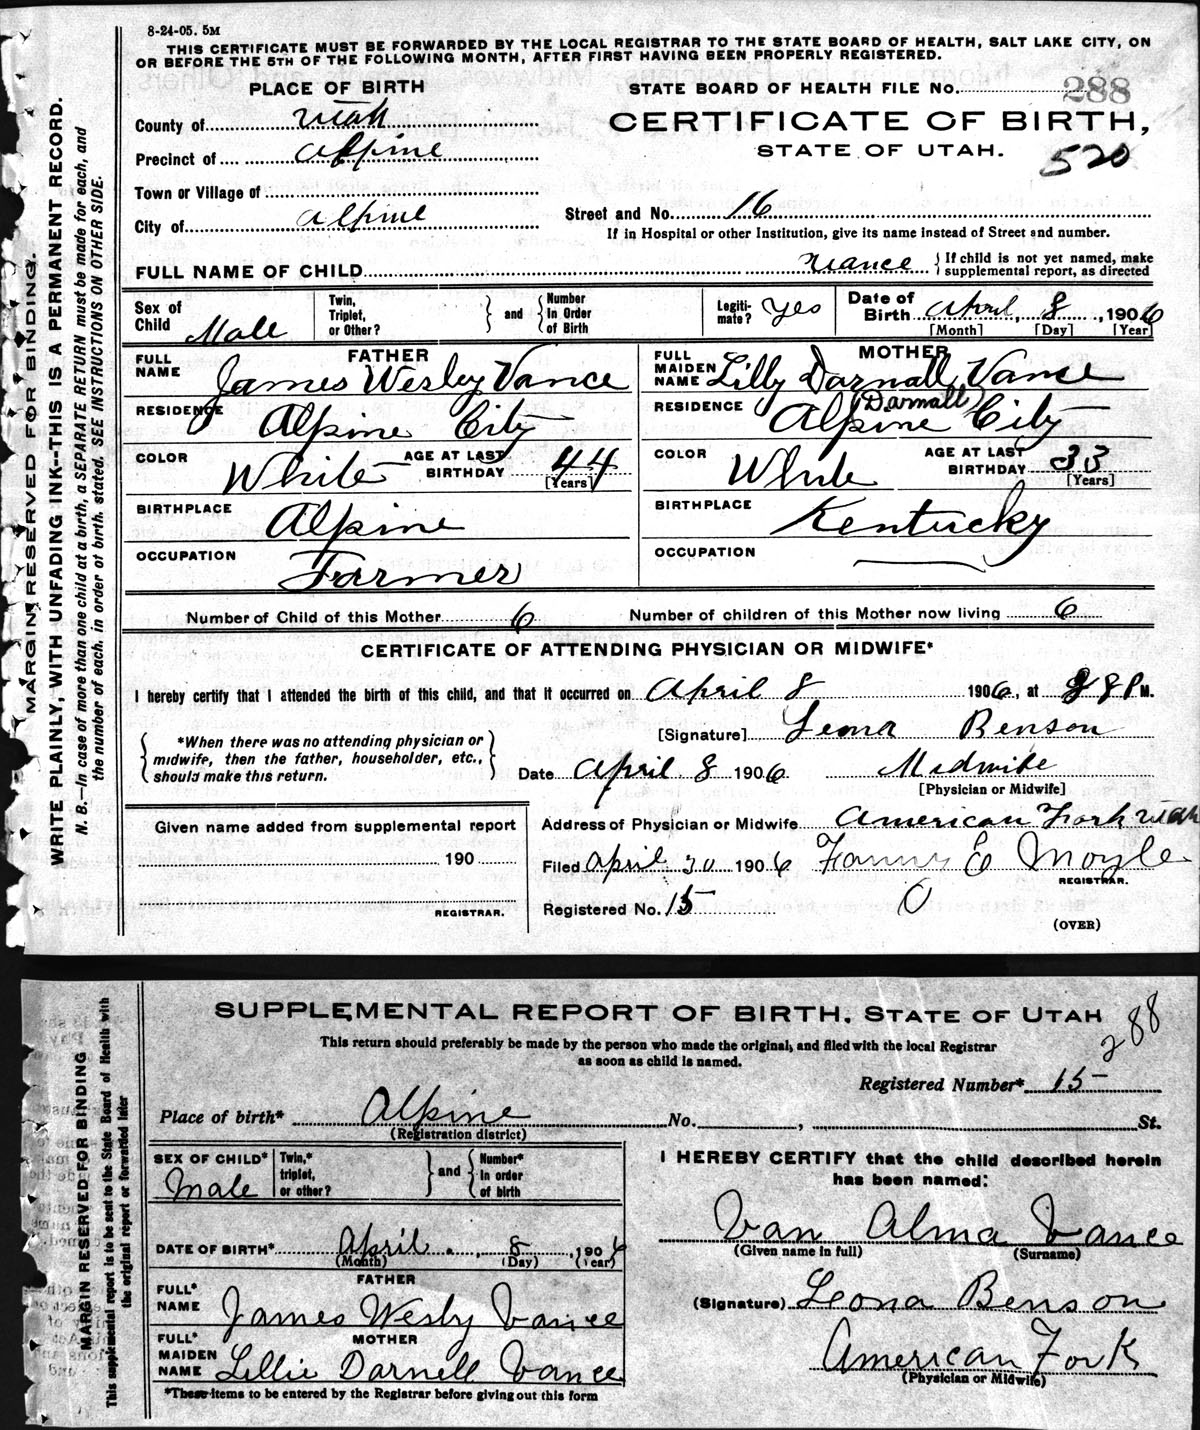 8-24-05. 5M
THIS CERTIFICATE MUST BE FORWARDED BY THE LOCAL REGISTRAR TO THE STATE BOARD OF HEALTH, SALT LAKE CITY, ON
OR BEFORE THE 5TH OF THE FOLLOWING MONTH, AFTER FIRST HAVING BEEN PROPERLY REGISTERED.
MARGIN RESERVED FOR BINDING.
WRITE PLAINLY, WITH UNFADING INK--THIS IS A PERMANENT RECORD.
N. B.—In case of more than one child at a birth, a SEPARATE RETURN must be made for each, and
the number of each, in order of birth, stated. SEE INSTRUCTIONS ON OTHER SIDE.
PLACE OF BIRTH
STATE BOARD OF HEALTH FILE No. 288
County of Utah
CERTIFICATE OF BIRTH,
Precinct of Alpine
STATE OF UTAH.
520
Town or Village of
City of Alpine
Street and No. 16
If in Hospital or other Institution, give its name instead of Street and number.
FULL NAME OF CHILD Vance { If child is not yet named, make supplemental report, as directed
Sex of Child Male
Twin, Triplet, or Other? } and { Number In Order of Birth
Legiti-mate? Yes
Date of Birth April 8, 1906
[Month] [Day] [Year]
FATHER
FULL NAME James Wesley Vance
MOTHER
FULL MAIDEN NAME Lilly Darnall Vance
(Darnall)
RESIDENCE Alpine City
RESIDENCE Alpine City
COLOR White AGE AT LAST BIRTHDAY 44 [Years]
COLOR White AGE AT LAST BIRTHDAY 33 [Years]
BIRTHPLACE Alpine
BIRTHPLACE Kentucky
OCCUPATION Farmer
OCCUPATION
Number of Child of this Mother 6 Number of children of this Mother now living 6
CERTIFICATE OF ATTENDING PHYSICIAN OR MIDWIFE*
I hereby certify that I attended the birth of this child, and that it occurred on April 8 1906, at 8 P M.
{ *When there was no attending physician or midwife, then the father, householder, etc., should make this return. }
[Signature] Leona Benson
Date April 8 1906 Midwife
[Physician or Midwife]
Given name added from supplemental report
190
REGISTRAR.
Address of Physician or Midwife American Fork Utah
Filed April 30 1906 Fanny E Moyle
REGISTRAR.
Registered No. 15
(OVER)
MARGIN RESERVED FOR BINDING
This supplemental report is to be sent to the State Board of Health with
the original report or forwarded later
SUPPLEMENTAL REPORT OF BIRTH, STATE OF UTAH
288
This return should preferably be made by the person who made the original, and filed with the local Registrar
as soon as child is named.
Registered Number* 15
Place of birth* Alpine No. , St.
(Registration district)
SEX OF CHILD* Male
Twin,* triplet, or other? } and { Number* in order of birth
I HEREBY CERTIFY that the child described herein
has been named:
Van Alma Vance
(Given name in full) (Surname)
DATE OF BIRTH* April 8, 1906
(Month) (Day) (Year)
FATHER
FULL* NAME James Wesley Vance
(Signature) Leona Benson
MOTHER
FULL* MAIDEN NAME Lillie Darnell Vance
American Fork
(Physician or Midwife)
*These items to be entered by the Registrar before giving out this form